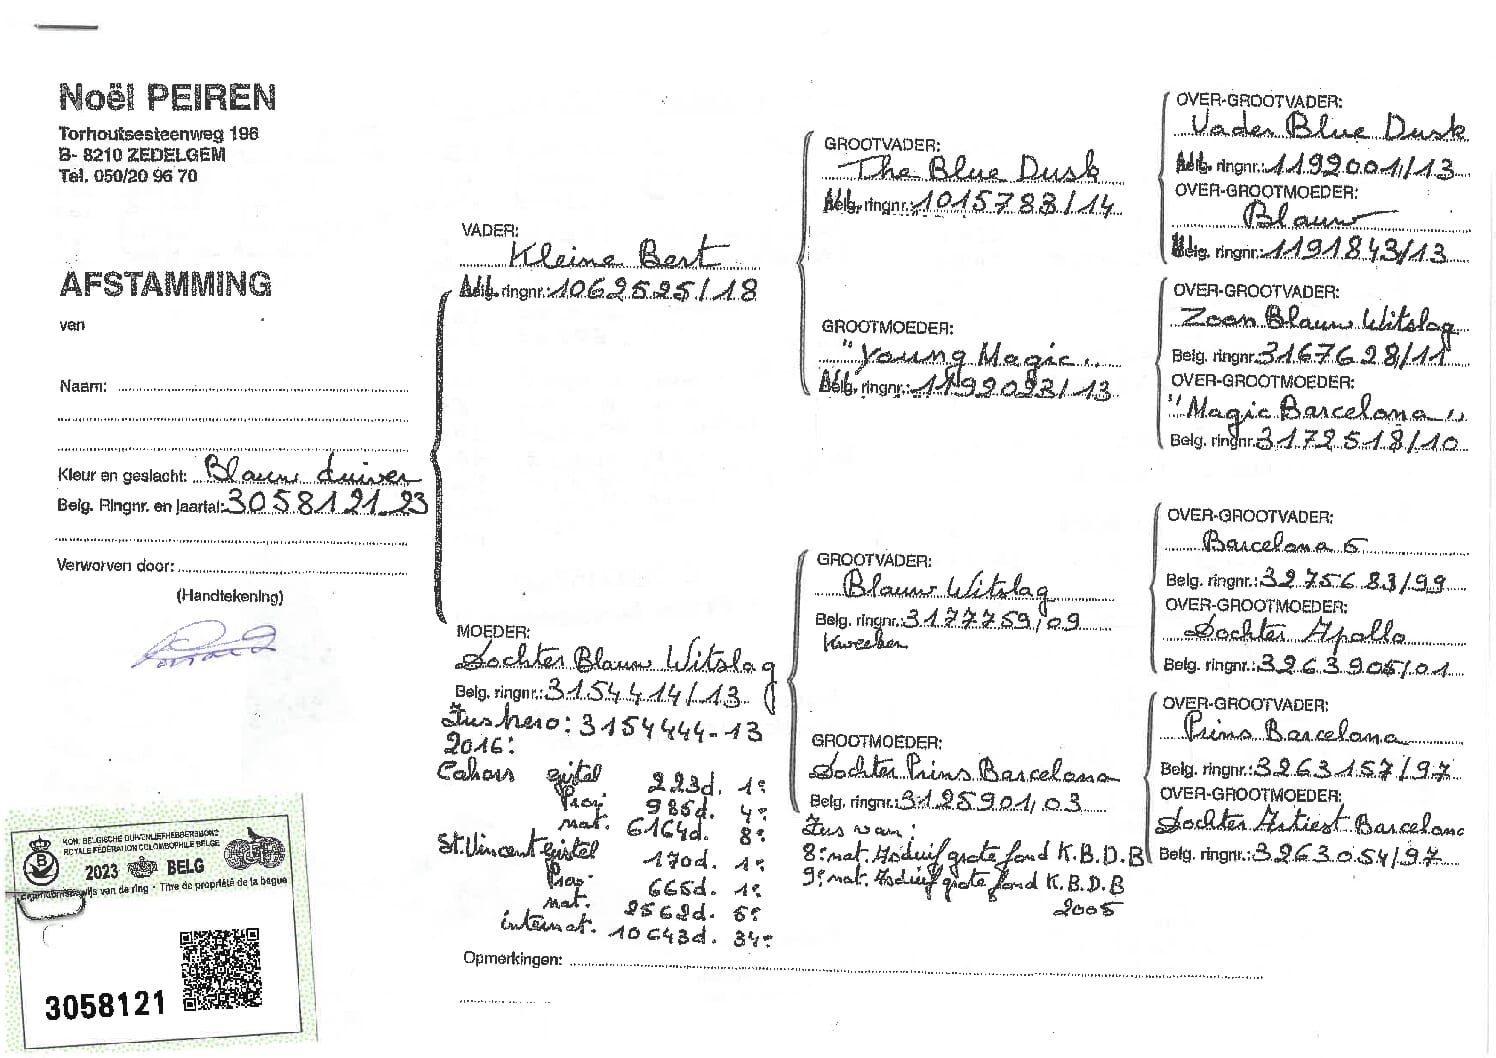 Noël PEIREN
Torhoutsesteenweg 196
B- 8210 ZEDELGEM
Tel. 050/20 96 70
AFSTAMMING
van
Naam:
Kleur en geslacht: Blauw duiver
Belg. Ringnr. en jaartal: 3058121-23
Verworven door:
(Handtekening)
KON. BELGISCHE DUIVENLIEFHEBBERSBOND
ROYALE FÉDÉRATION COLOMBOPHILE BELGE
2023 BELG
Eigendomsbewijs van de ring - Titre de propriété de la bague
3058121
VADER:
Kleine Bert
Belg. ringnr.: 1062525/18
MOEDER:
Dochter Blauw Witslag
Belg. ringnr.: 3154414/13
Zus hero: 3154444-13
2016:
Cahors gistel 223d. 1e
Prov. 985d. 4e
nat. 6164d. 8e
St. Vincent gistel 170d. 1e
Prov. 665d. 1e
nat. 2562d. 5e
internat. 10643d. 34e
Opmerkingen:
GROOTVADER:
The Blue Dusk
Belg. ringnr.: 1015783/14
GROOTMOEDER:
"Young Magic"
Belg. ringnr.: 11992093/13
GROOTVADER:
Blauw Witslag
Belg. ringnr.: 3177759/09
Kweeker
GROOTMOEDER:
Dochter Prins Barcelona
Belg. ringnr.: 3125901/03
Zus van:
8e nat. Asduif grote fond K.B.D.B
9e nat. Asduif grote fond K.B.D.B
2005
OVER-GROOTVADER:
Vader Blue Dusk
Belg. ringnr.: 1199001/13
OVER-GROOTMOEDER:
Blauw
Belg. ringnr.: 1191843/13
OVER-GROOTVADER:
Zoon Blauw Witslag
Belg. ringnr. 3167628/11
OVER-GROOTMOEDER:
"Magic Barcelona"
Belg. ringnr. 3172518/10
OVER-GROOTVADER:
Barcelona 5
Belg. ringnr.: 3275683/99
OVER-GROOTMOEDER:
Dochter Apollo
Belg. ringnr.: 3263905/01
OVER-GROOTVADER:
Prins Barcelona
Belg. ringnr.: 3263157/97
OVER-GROOTMOEDER:
Dochter Artiest Barcelona
Belg. ringnr.: 3263054/97